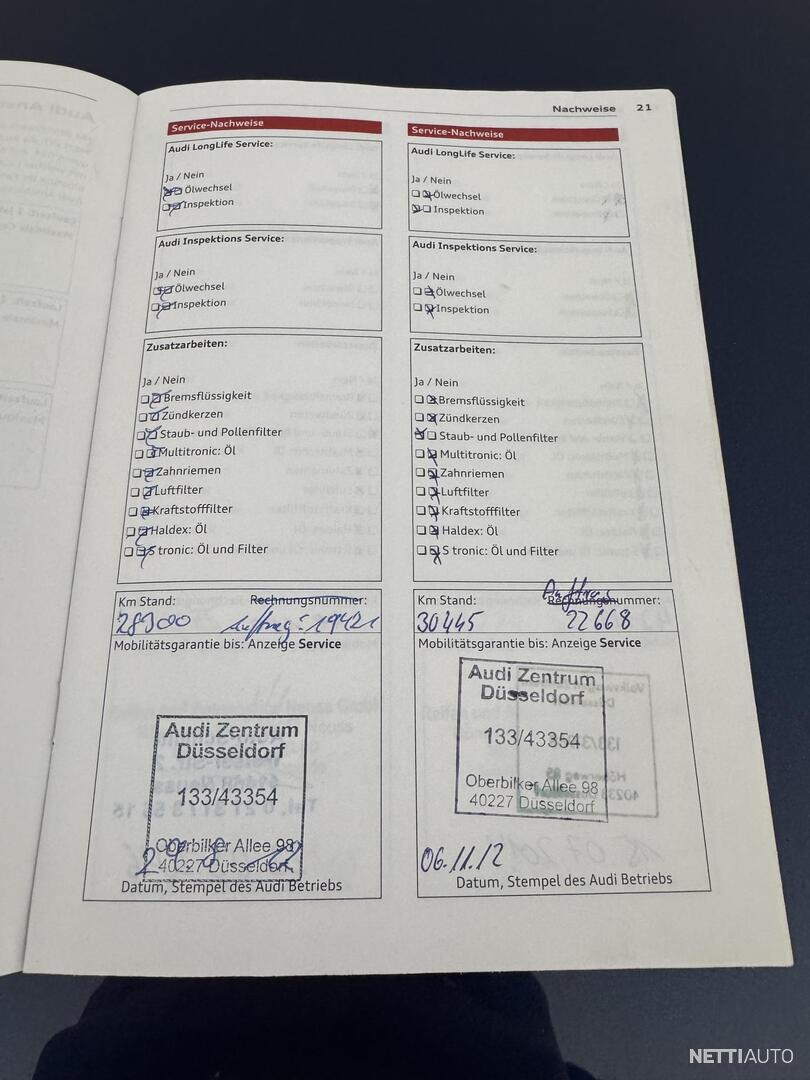 Nachweise 21
Service-Nachweise
Audi LongLife Service:
Ja / Nein
Ölwechsel
Inspektion
Audi Inspektions Service:
Ja / Nein
Ölwechsel
Inspektion
Zusatzarbeiten:
Ja / Nein
Bremsflüssigkeit
Zündkerzen
Staub- und Pollenfilter
Multitronic: Öl
Zahnriemen
Luftfilter
Kraftstofffilter
Haldex: Öl
S tronic: Öl und Filter
Km Stand: Rechnungsnummer:
28900 Auftrag: 19421
Mobilitätsgarantie bis: Anzeige Service
Audi Zentrum
Düsseldorf
133/43354
Oberbilker Allee 98
40227 Düsseldorf
Datum, Stempel des Audi Betriebs
Service-Nachweise
Audi LongLife Service:
Ja / Nein
Ölwechsel
Inspektion
Audi Inspektions Service:
Ja / Nein
Ölwechsel
Inspektion
Zusatzarbeiten:
Ja / Nein
Bremsflüssigkeit
Zündkerzen
Staub- und Pollenfilter
Multitronic: Öl
Zahnriemen
Luftfilter
Kraftstofffilter
Haldex: Öl
S tronic: Öl und Filter
Auftrags
Km Stand: Rechnungsnummer:
30445 22668
Mobilitätsgarantie bis: Anzeige Service
Audi Zentrum
Düsseldorf
133/43354
Oberbilker Allee 98
40227 Düsseldorf
06.11.12
Datum, Stempel des Audi Betriebs
NETTIAUTO